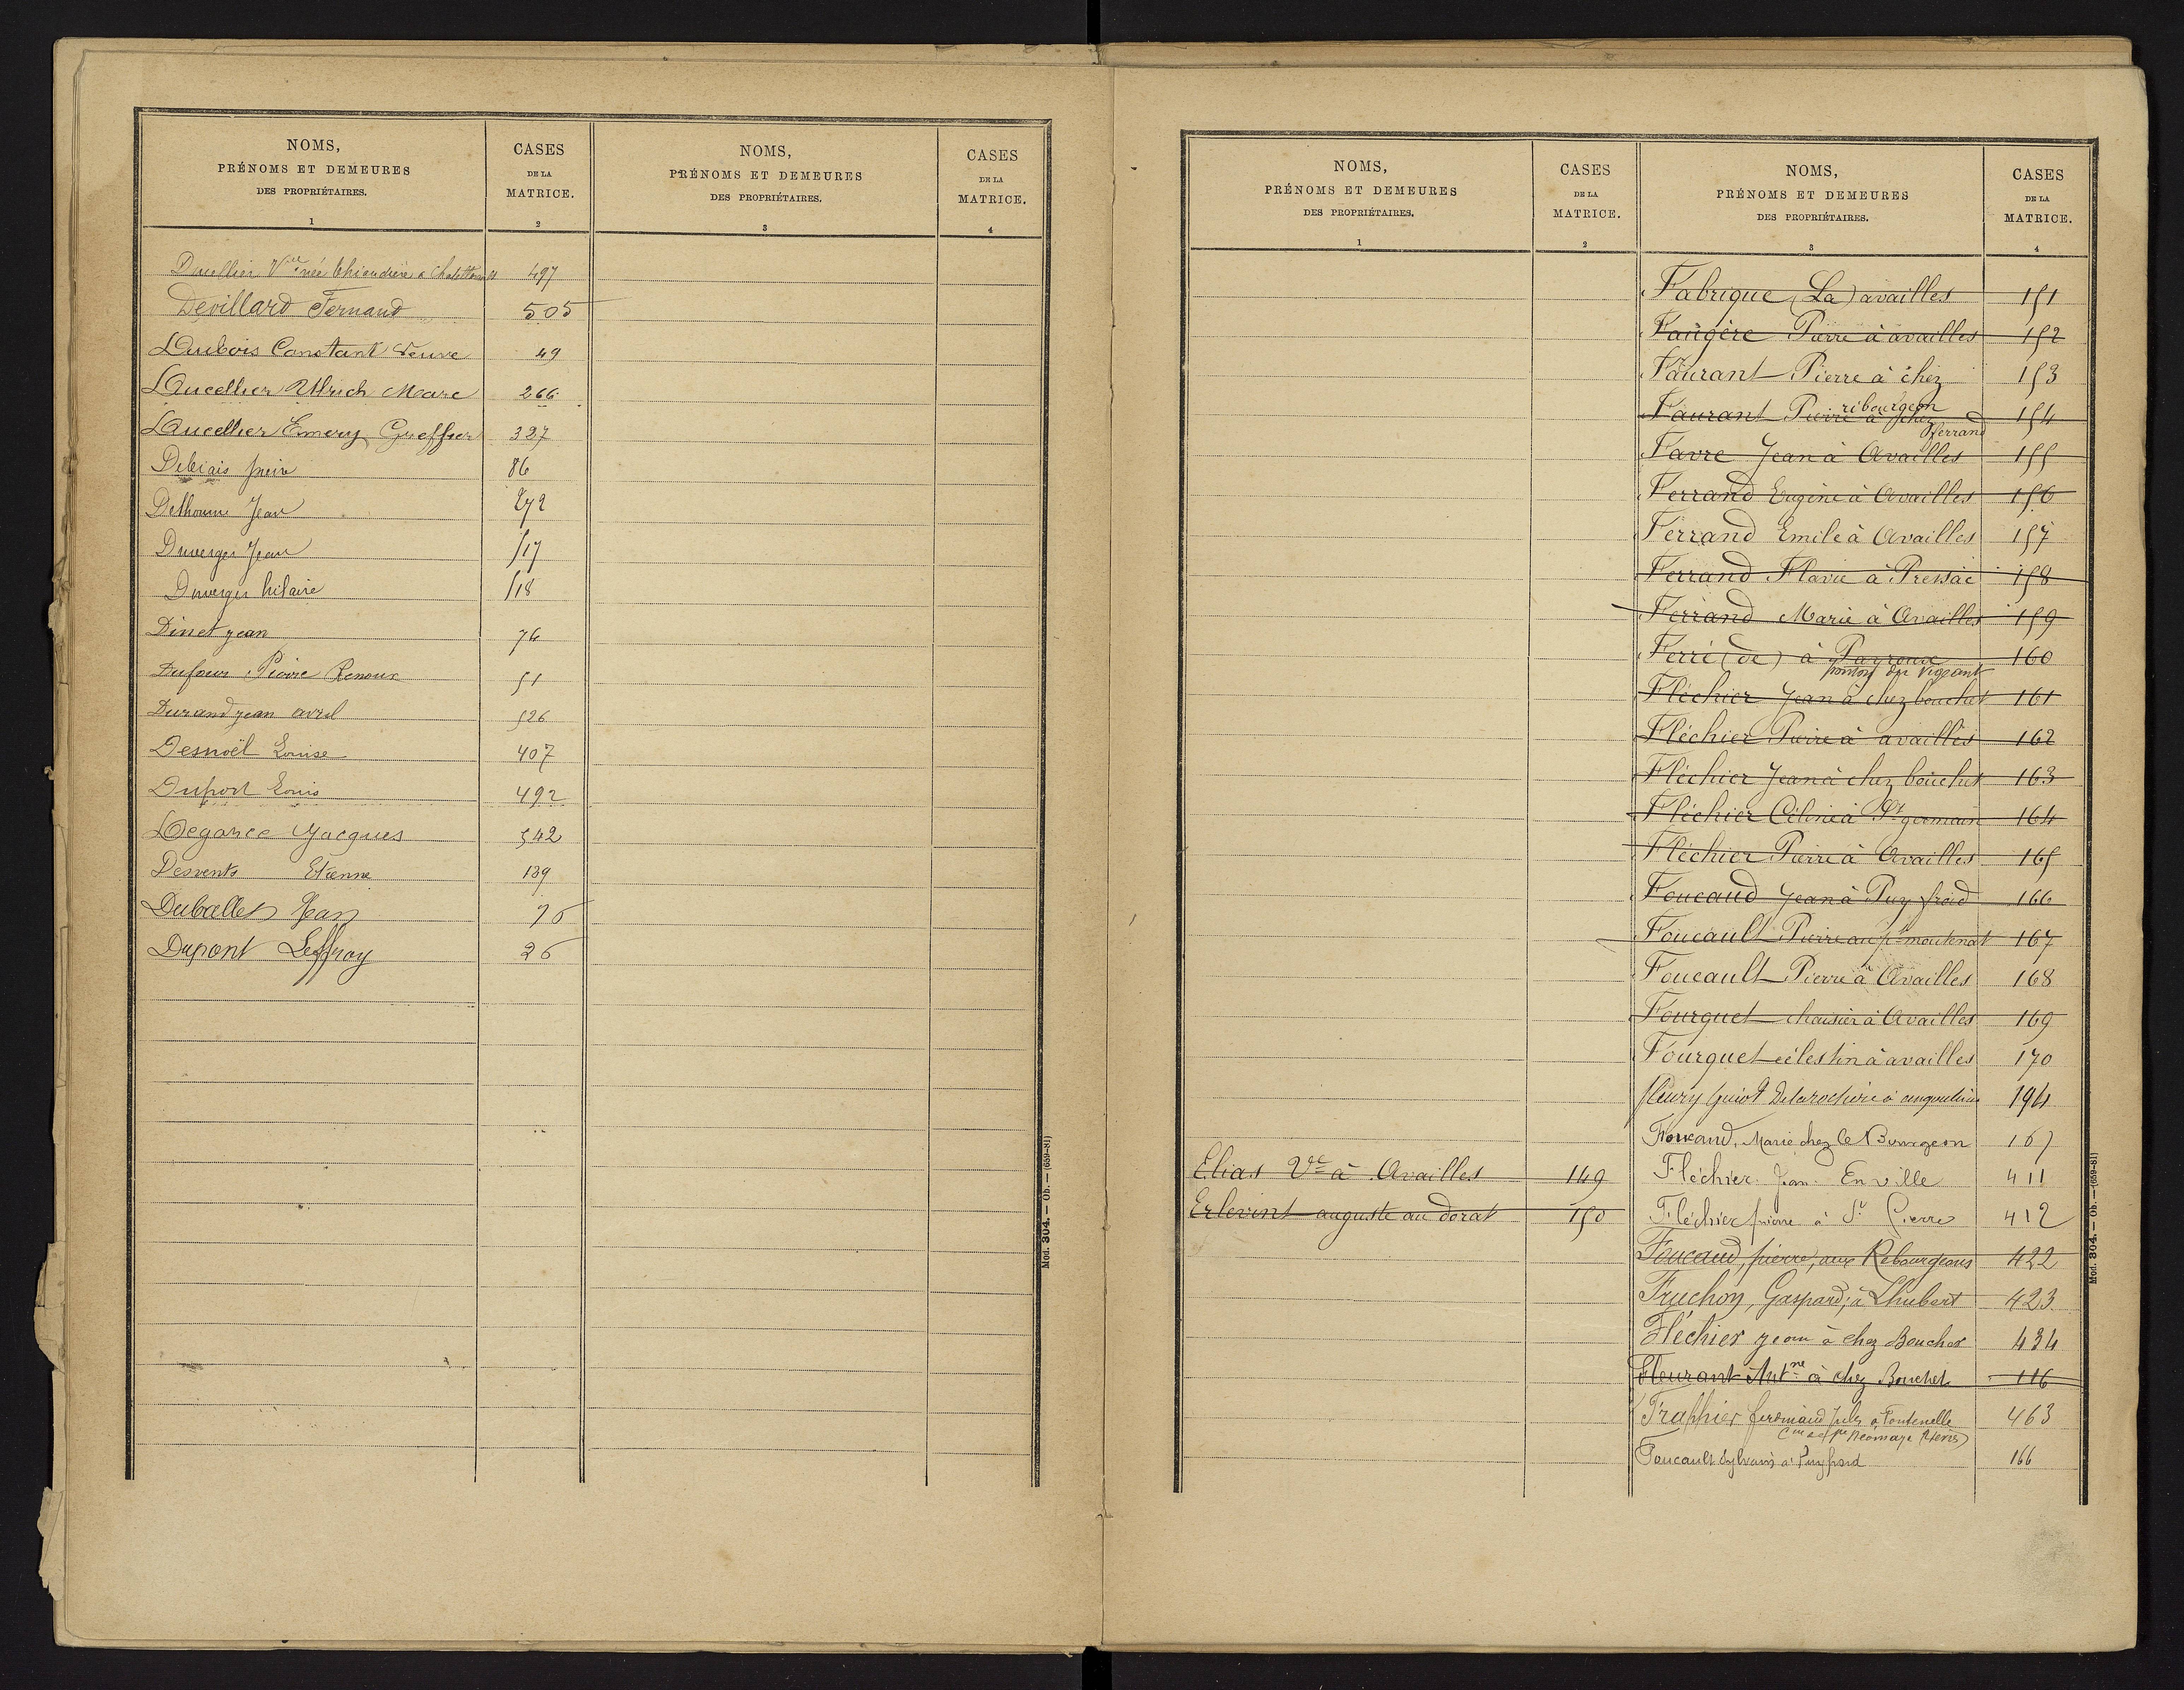 NOMS,
PRÉNOMS ET DEMEURES
DES PROPRIÉTAIRES.
1
CASES
DE LA
MATRICE.
2
NOMS,
PRÉNOMS ET DEMEURES
DES PROPRIÉTAIRES.
3
CASES
DE LA
MATRICE.
4
Ducellier Vve née 497
Devillard Fernand 505
Dubois Constant Veuve 49
Ducellier Ulrich Marc 266
Ducellier Emery Greffier 327
Debiais 86
Dethoume Jean 272
Duverger Jean 517
Duverger hilaire 518
Dinet jean 76
Dufour Pierre Renoux 51
Durand jean avril 526
Desnoël Louise 407
Duport Louis 492
Degance Jacques 542
Desvents Etienne 139
Duballet Jean 76
Dupont Leffray 26
Mod. 304. — Ob. — (659-81)
NOMS,
PRÉNOMS ET DEMEURES
DES PROPRIÉTAIRES.
1
CASES
DE LA
MATRICE.
2
Elias Vve à Availles 149
Erlevint auguste au dorat 150
NOMS,
PRÉNOMS ET DEMEURES
DES PROPRIÉTAIRES.
3
CASES
DE LA
MATRICE.
4
Fabrique (La) availles 151
Faugère Pierre à availles 152
Faurant Pierre à chez 153
ribourgeon
Faurant Pierre à chez 154
Ferrand
Favre Jean à Availles 155
Ferrand Eugène à Availles 156
Ferrand Emile à Availles 157
Ferrand Flavie à Pressac 158
Ferrand Marie à Availles 159
Ferré (de) à Payroux 160
du Vigeant
Fléchier Jean à chez bouchet 161
Fléchier Pierre à availles 162
Fléchier Jean à chez bouchet 163
Fléchier Céline à St germain 164
Fléchier Pierre à Availles 165
Foucaud Jean à Puy froid 166
Foucault Pierre au pt moutenat 167
Foucault Pierre à Availles 168
Fourquet chaisier à Availles 169
Fourquet célestin à availles 170
fleury guiot Delarochere à angoulème 194
Foucaud, Marie chez le Bourgeon 167
Fléchier Jean En ville 411
Fléchier pierre à St Pierre 412
Foucaud, pierre, aux Rebourgeons 422
Fruchon, Gaspard, à Lhubert 423
Fléchier jean à chez Bouchet 434
Fleurant Antne à chez Bouchet 116
Traphier ferdinand Jules à Fontenelle 463
Foucault Sylvain à Puyfroid 166
Mod. 304. — Ob. — (659-81)